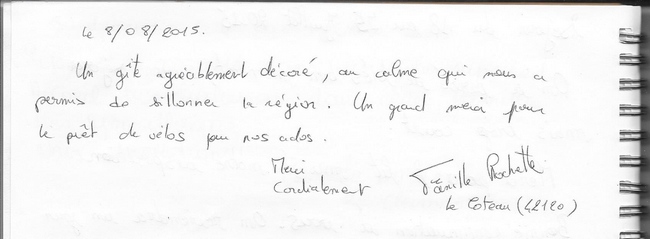 le 8/08/2015.
Un gîte agréablement décoré, au calme qui nous a
permis de sillonner la région. Un grand merci pour
le prêt de vélos pour nos ados.
Merci
Cordialement
Famille Rochette
le Coteau (42120)